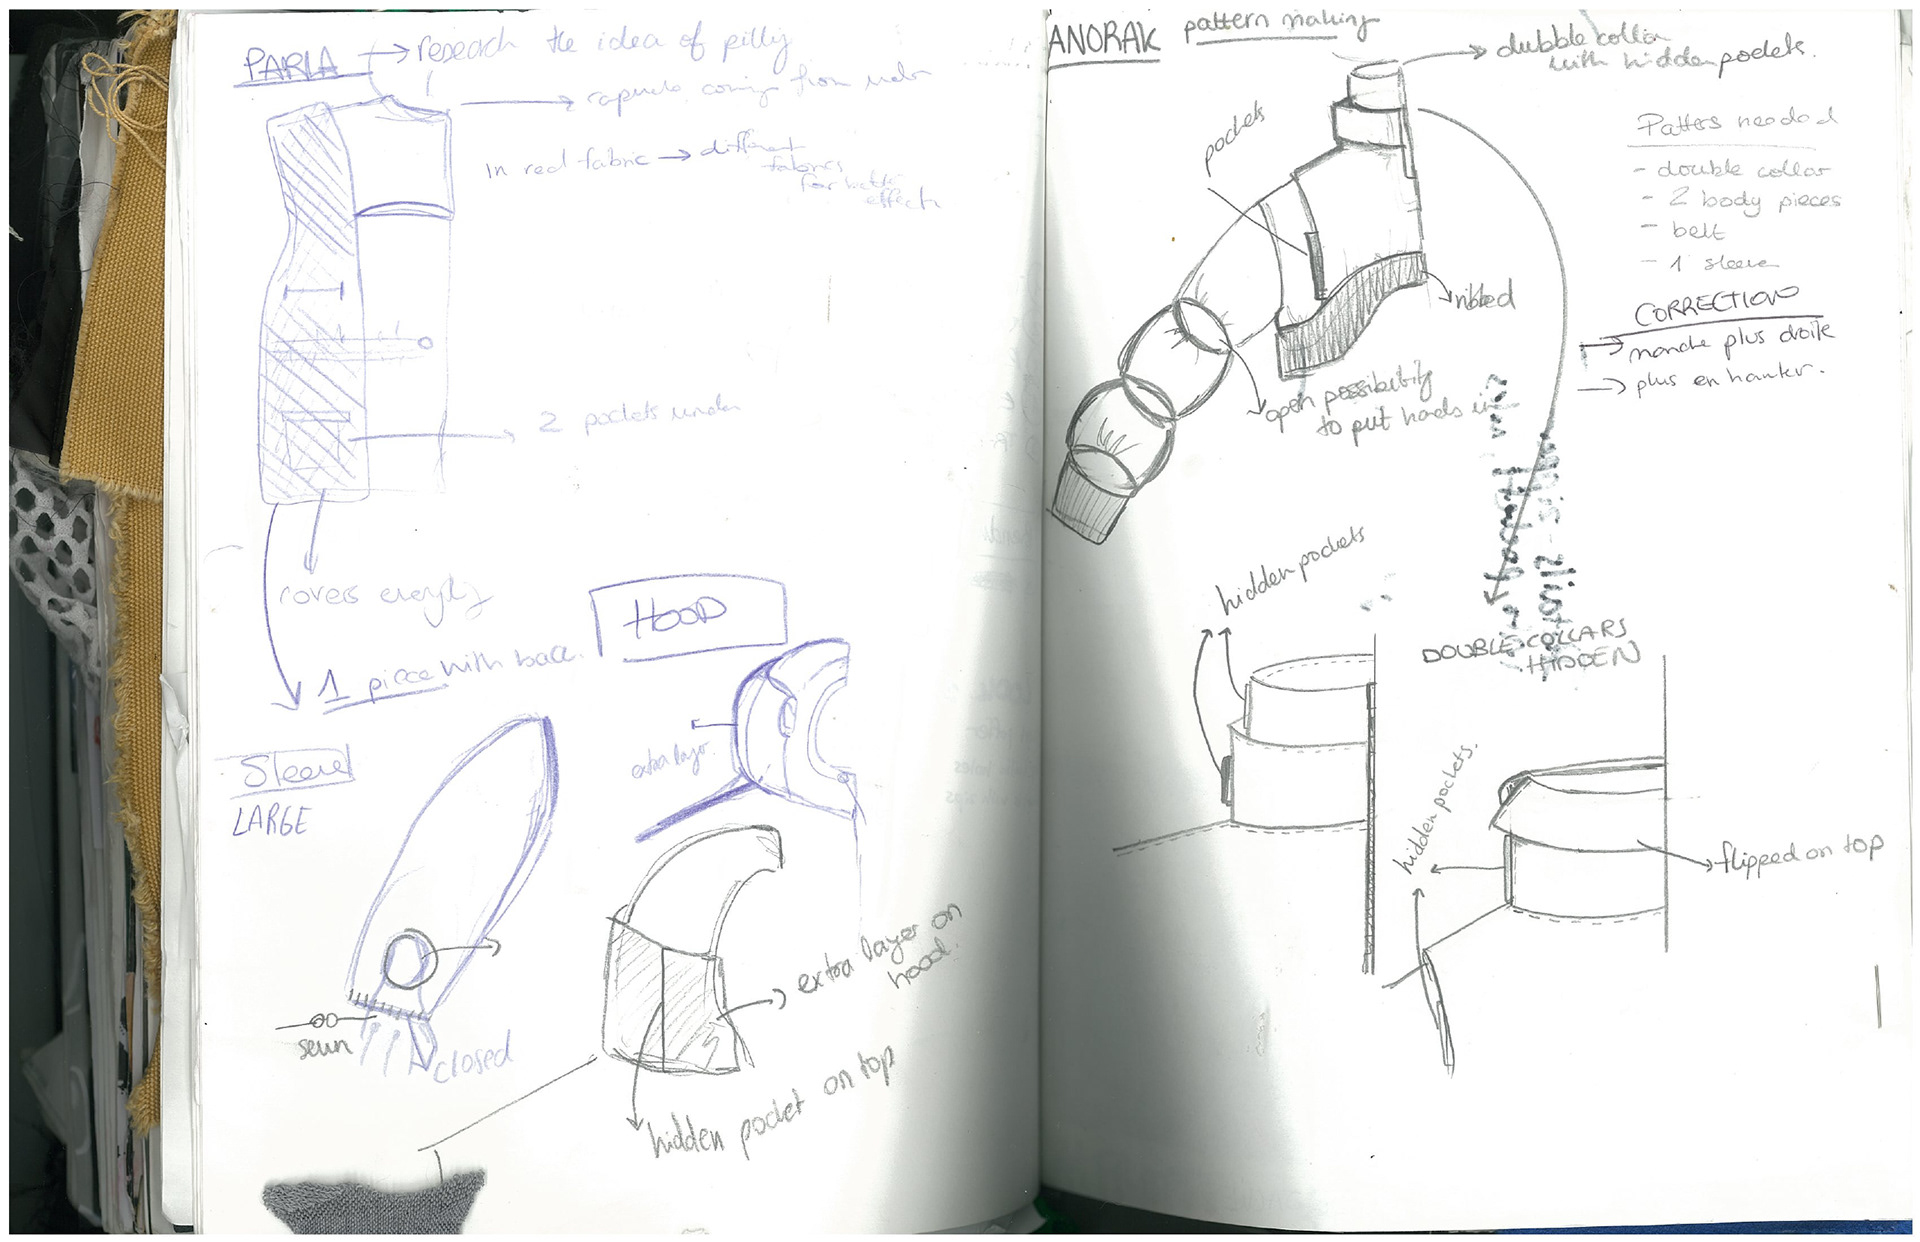 PARKA → research the idea of
coming from under
In red fabric → different
fabrics
for better
effect
2 pockets under
covers
1 piece with back.
HOOD
extra layer.
Sleeve
LARGE
closed
extra layer on
hood.
hidden pocket on top
ANORAK pattern making
dubble collar
with hidden pockets.
pockets
Patterns needed
- double collar
- 2 body pieces
- belt
- 1 sleeve
ribbed
CORRECTION
→ manche plus droite
→ plus en hauteur.
open possibility
to put hands in
hidden pockets
DOUBLE COLLARS
HIDDEN
hidden pockets.
flipped on top